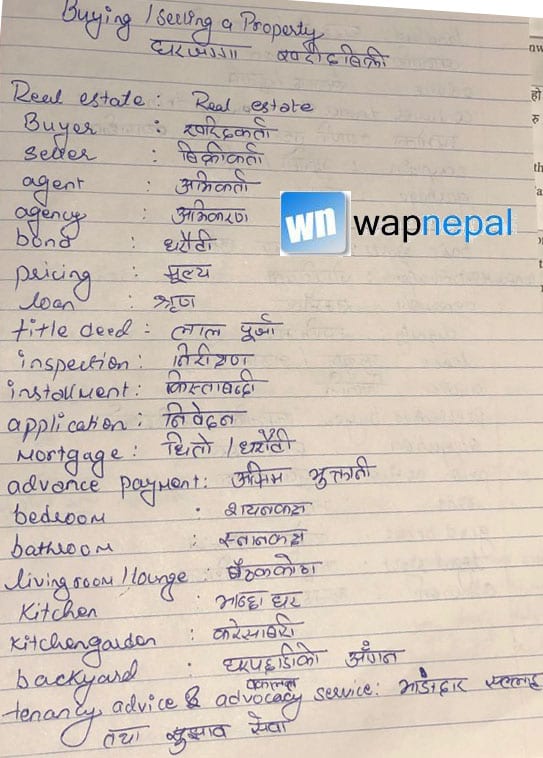 Buying / selling a Property
घरजग्गा खरीदबिक्री
Real estate : Real estate
Buyer : खरिदकर्ता
Seller : बिक्रीकर्ता
agent : अभिकर्ता
agency : अभिकरण
wn wapnepal
bond : धरौटी
pricing : मूल्य
loan : ऋण
title deed : लाल पूर्जा
inspection : निरीक्षण
installment : किस्ताबन्दी
application : निवेदन
Mortgage : धितो / धरौटी
advance payment : अग्रिम भुक्तानी
bedroom : शयनकक्ष
bathroom : स्नानकक्ष
living room / lounge : बैठककोठा
Kitchen : भान्छा घर
Kitchengarden : करेसाबारी
backyard : घरपछाडीको आँगन
वकालत
tenancy advice & advocacy service : भाडादार सल्लाह
तथा सुझाव सेवा